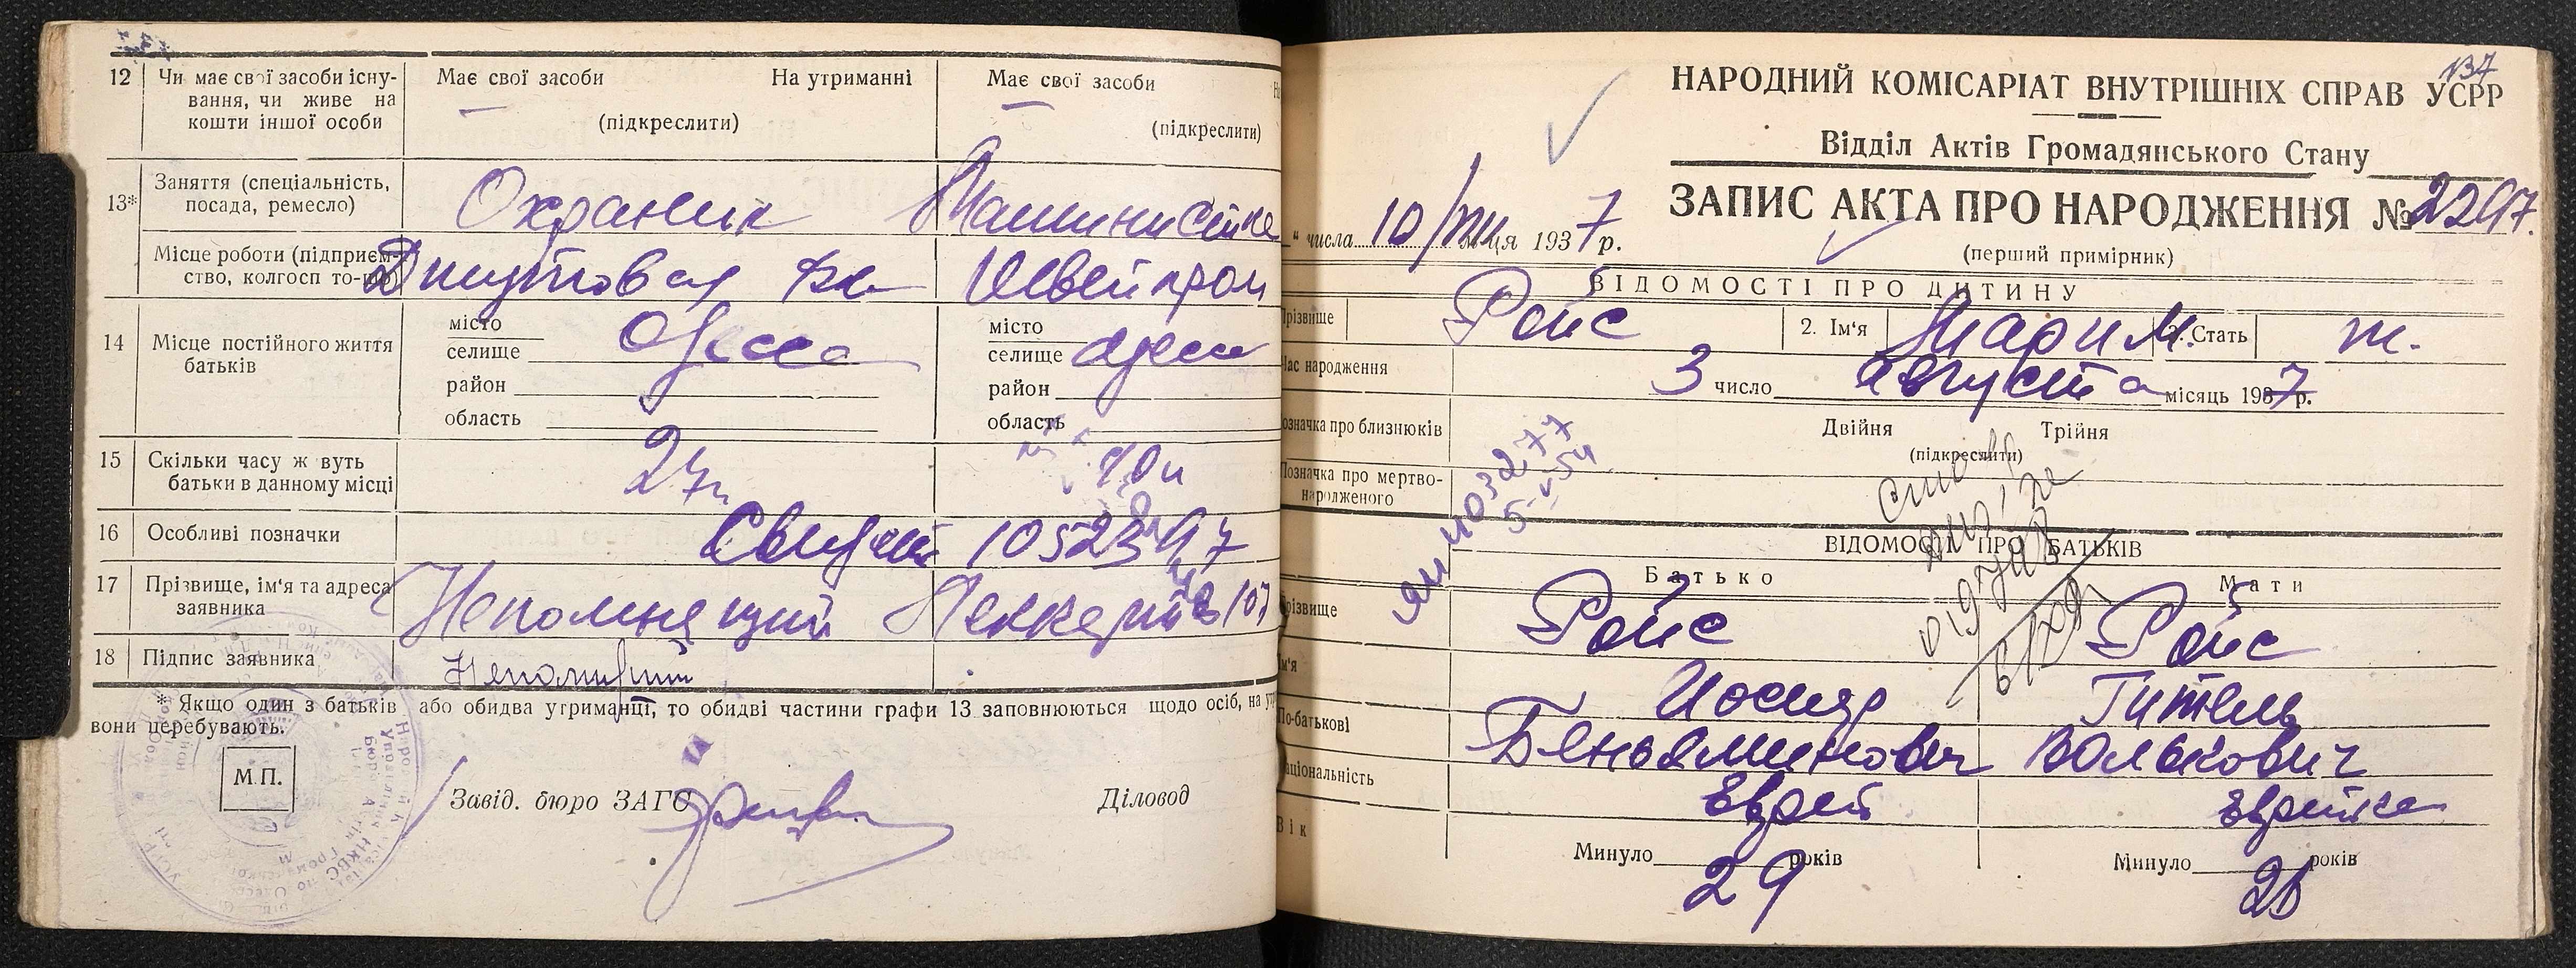 12 Чи має свої засоби існу-
вання, чи живе на
кошти іншої особи
Має свої засоби На утриманні
(підкреслити)
Має свої засоби
(підкреслити)
13* Заняття (спеціальність,
посада, ремесло)
Охраник Машинистка
Місце роботи (підприєм-
ство, колгосп то-що)
Джутовая Швейпром
14 Місце постійного життя
батьків
місто
селище Одесса
район
область
місто
селище Одесса
район
область
15 Скільки часу ж вуть
батьки в данному місці
16 Особливі позначки
17 Прізвище, ім'я та адреса
заявника
Непомнящий
18 Підпис заявника
Непомнящий
* Якщо один з батьків або обидва утриманці, то обидві частини графи 13 заповнюються щодо осіб, на
вони перебувають.
М.П.
Завід. бюро ЗАГС Діловод
137
НАРОДНИЙ КОМІСАРІАТ ВНУТРІШНІХ СПРАВ УСРР
Відділ Актів Громадянського Стану
ЗАПИС АКТА ПРО НАРОДЖЕННЯ № 2297.
(перший примірник)
" числа 10/VIII місяця 1937 р.
ВІДОМОСТІ ПРО ДИТИНУ
Прізвище Ройс 2. Ім'я Мариям. 3. Стать ж.
Час народження 3 число августа місяць 1937 р.
Позначка про близнюків Двійня Трійня
(підкреслити)
Позначка про мертво-
народженого
ЯШ 403277
5-V-54
ВІДОМОСТІ ПРО БАТЬКІВ
Батько Мати
Прізвище Ройс Ройс
Ім'я Иосиф Гитель
По-батькові Беньяминович Волькович
Національність Еврей Еврейка
Вік Минуло 29 років Минуло років